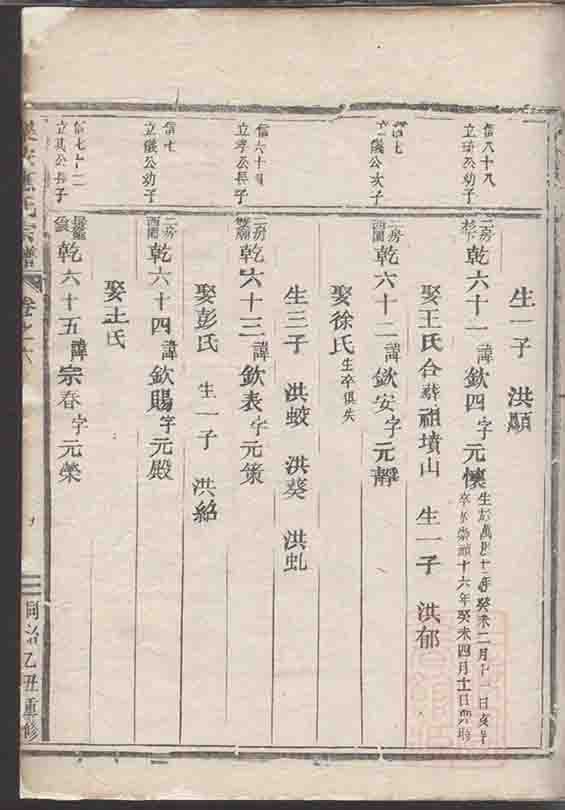 生一子 洪顯
信八十九
立 公幼子
二房 乾六十一諱欽四字元懷 生於萬曆十一年癸未二月十一日亥時
卒於崇禎十六年癸未四月 日 時
娶王氏合葬祖墳山 生一子 洪郁
信七
立儀公次子
二房 西園 乾六十二諱欽安字元靜
娶徐氏生卒俱失
生三子 洪蛟 洪葵 洪虬
信六十
立孝公長子
二房 乾六十三諱欽表字元策
娶彭氏 生一子 洪紹
信七
立儀公幼子
二房 西園 乾六十四諱欽賜字元殿
娶王氏
信七十二
立 公長子
乾六十五諱宗春字元榮
氏宗譜 卷之六
三
同治乙丑重修